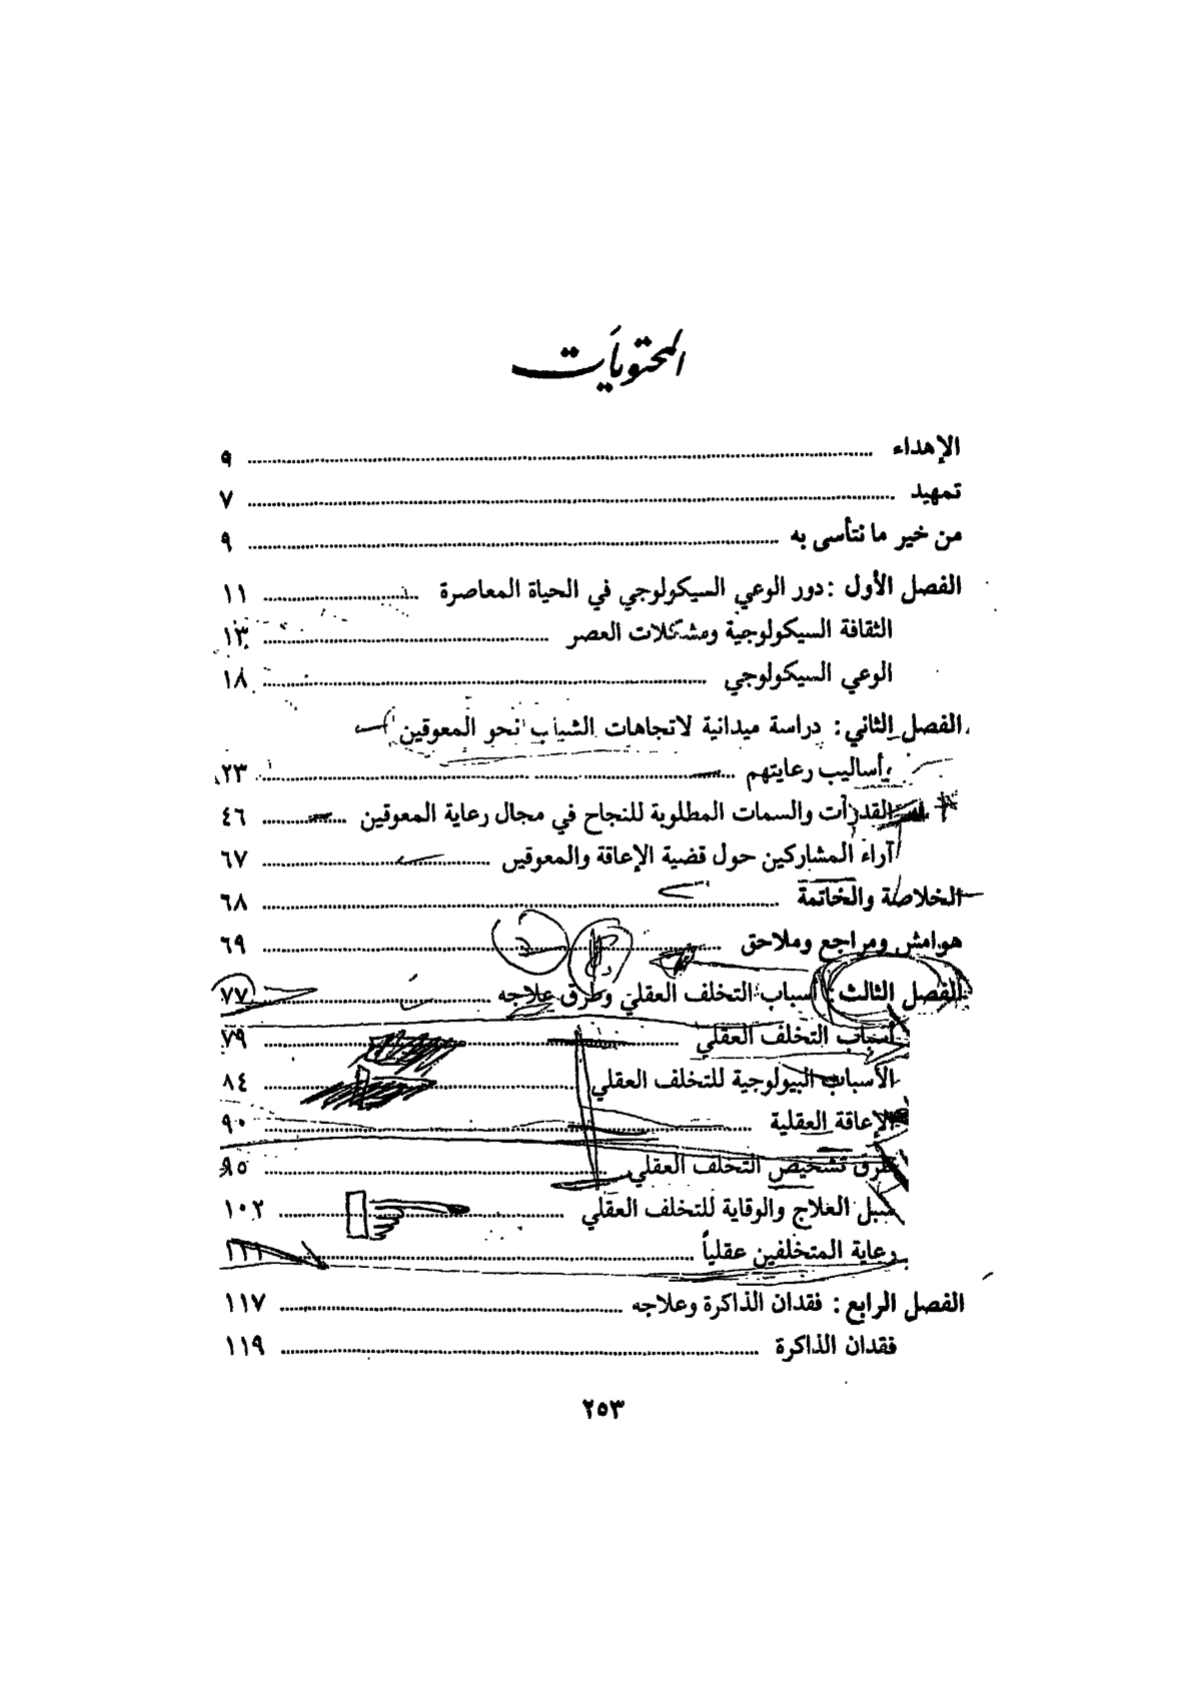 المحتويات
الإهداء ٩
تمهيد ٧
من خير ما نتأسى به ٩
الفصل الأول : دور الوعي السيكولوجي في الحياة المعاصرة ١١
الثقافة السيكولوجية ومشكلات العصر ١٣
الوعي السيكولوجي ١٨
الفصل الثاني : دراسة ميدانية لاتجاهات الشباب نحو المعوقين
وأساليب رعايتهم ٢٣
القدرات والسمات المطلوبة للنجاح في مجال رعاية المعوقين ٤٦
آراء المشاركين حول قضية الإعاقة والمعوقين ٦٧
الخلاصة والخاتمة ٦٨
هوامش ومراجع وملاحق ٦٩
الفصل الثالث : أسباب التخلف العقلي وطرق علاجه ٧٧
أسباب التخلف العقلي ٧٩
الأسباب البيولوجية للتخلف العقلي ٨٤
الإعاقة العقلية ٩٠
طرق تشخيص التخلف العقلي ٩٥
سبل العلاج والوقاية للتخلف العقلي ١٠٢
رعاية المتخلفين عقلياً
الفصل الرابع : فقدان الذاكرة وعلاجه ١١٧
فقدان الذاكرة ١١٩
٢٥٣